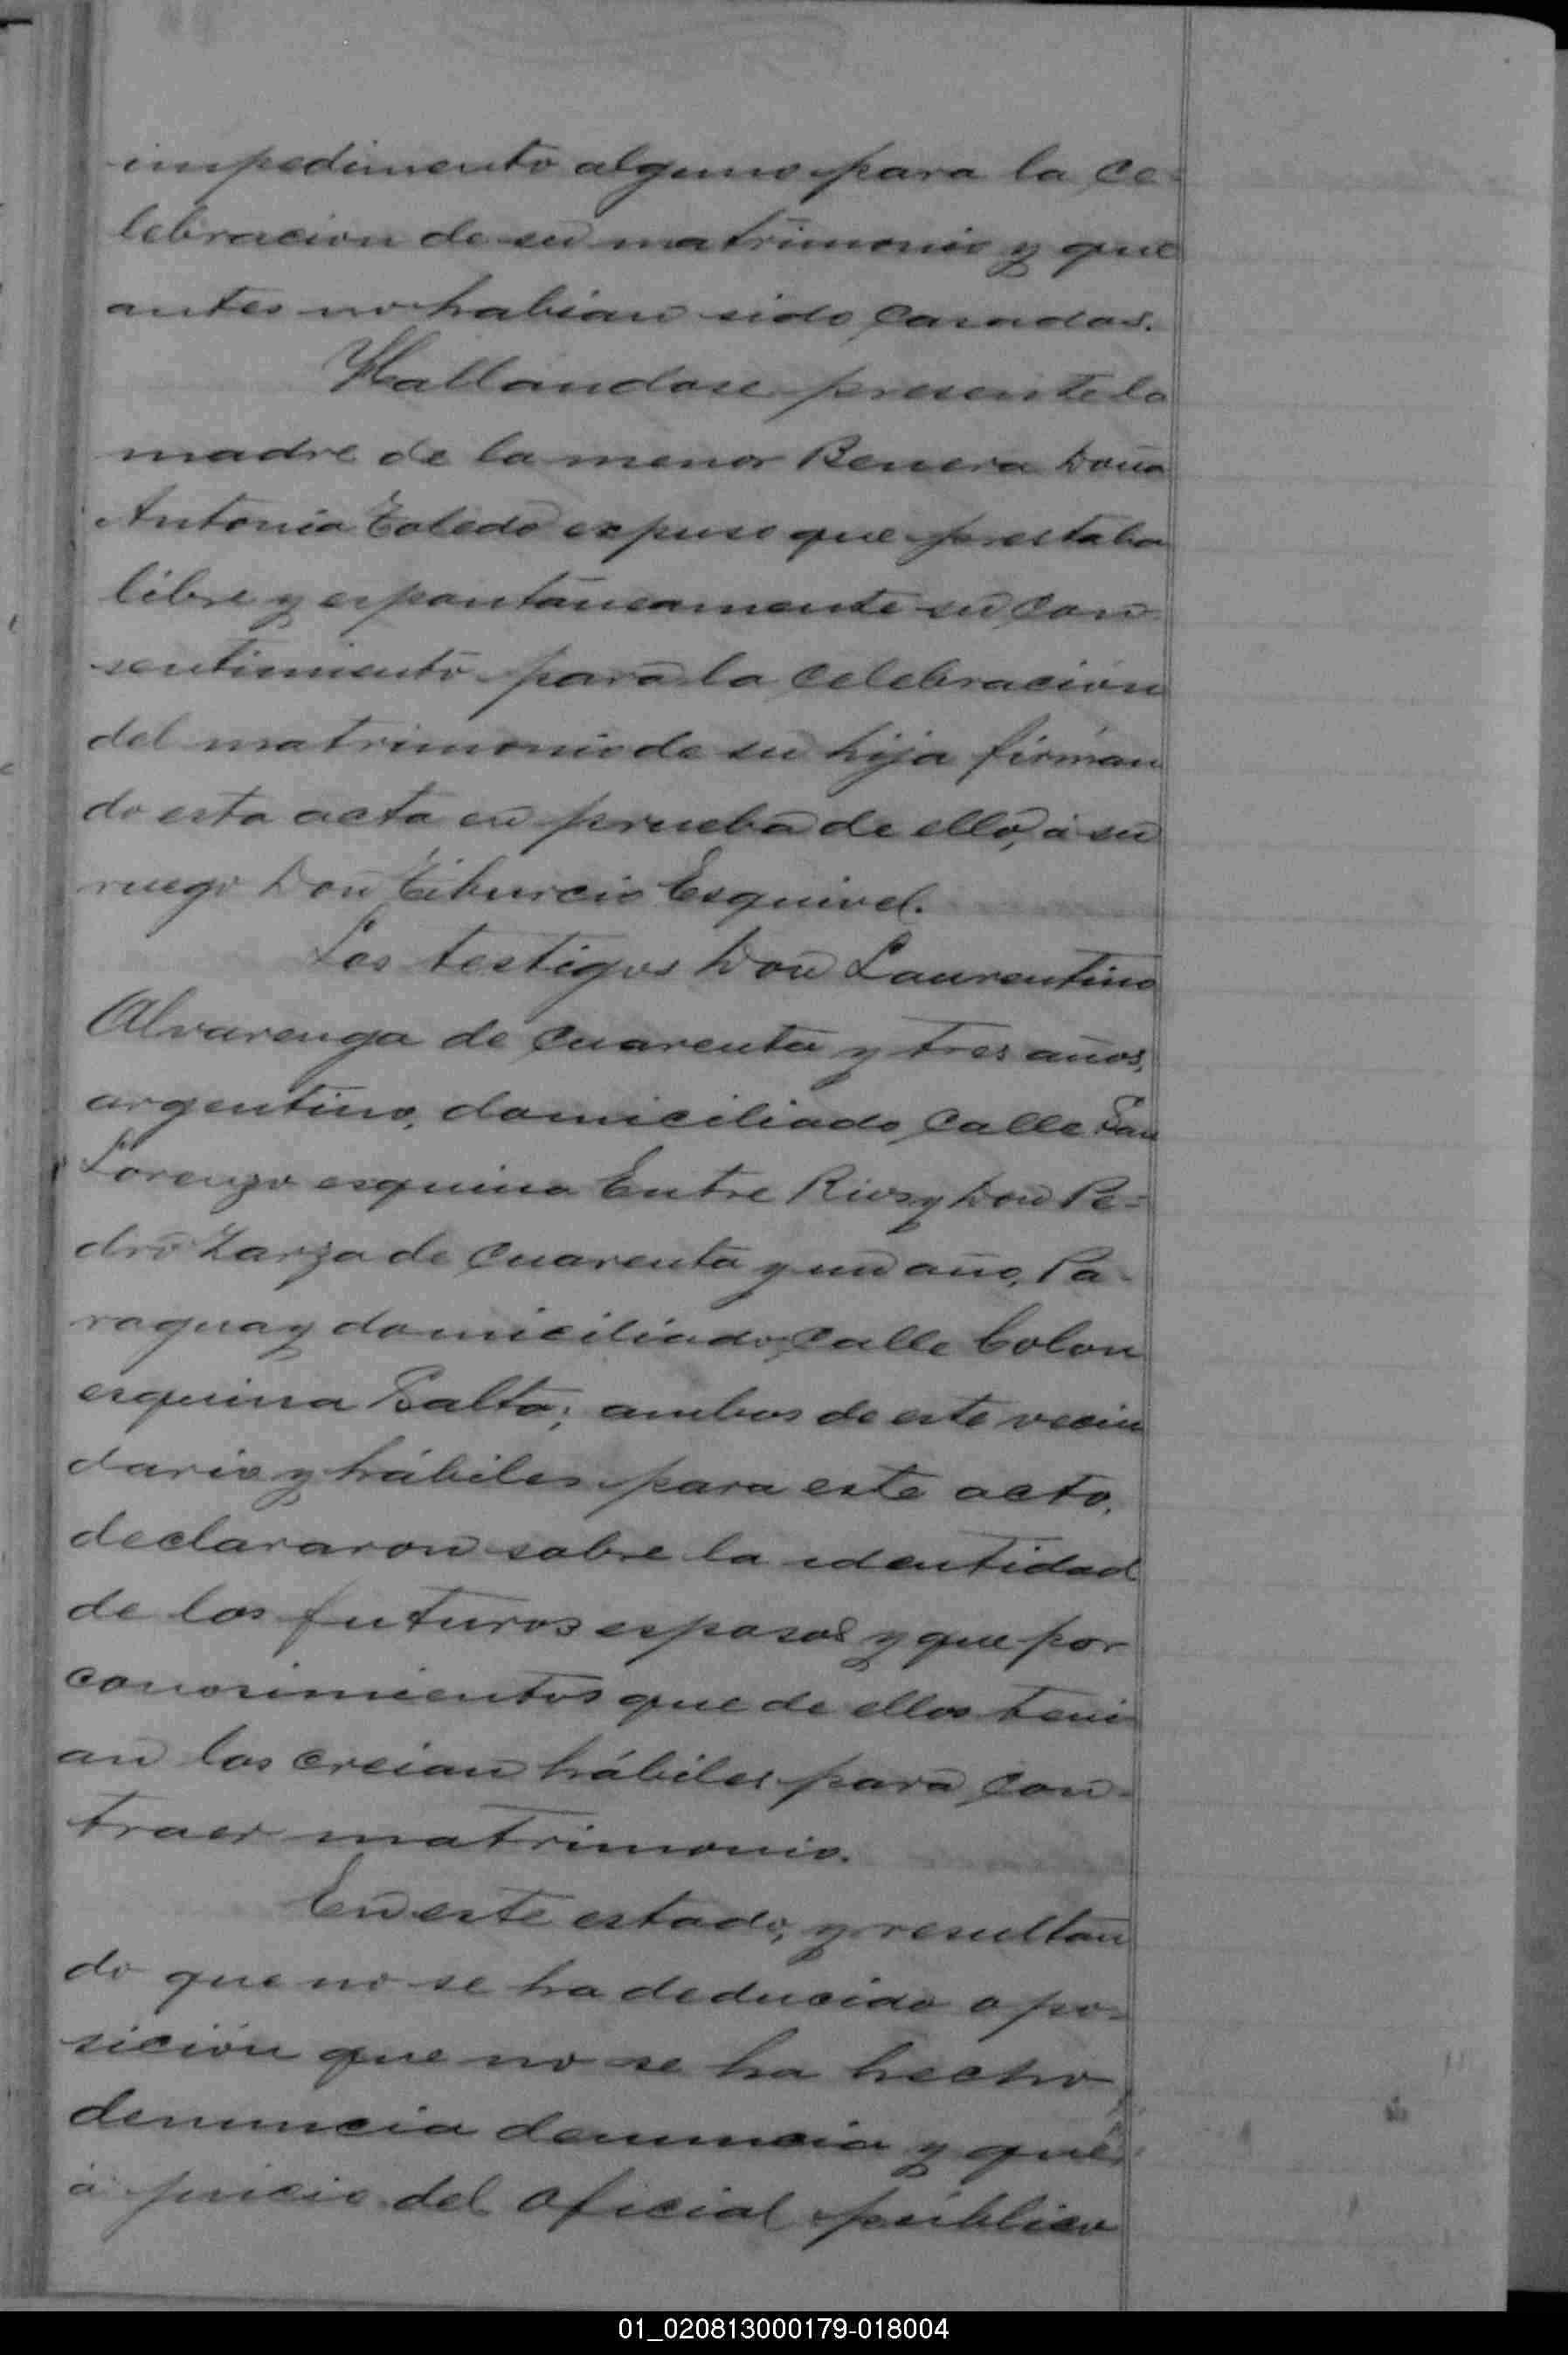 impedimento alguno para la ce=
lebracion de su matrimonio y que
antes no habian sido casados.
Hallandose presente la
madre de la menor Benera Doña
Antonia Toledo expuso que prestaba
libre y espontáneamente su con
sentimiento para la celebración
del matrimonio de su hija firman
do esta acta en prueba de ello, á su
ruego Don Tiburcio Esquivel.
Los testigos Don Laurentino
Alvarenga de cuarenta y tres años,
argentino, domiciliado calle San
Lorenzo esquina Entre Rios y Don Pe=
dro Zarza de cuarenta y un año, Pa-
raguay domiciliado, calle Colon
esquina Salta; ambos de este vecin
dario y hábiles para este acto,
declararon sobre la identidad
de los futuros esposos y que por
conosimientos que de ellos teni
an los creian hábiles para con-
traer matrimonio.
En este estado, y resultan
do que no se ha deducido opo=
sición que no se ha hecho
denuncia denuncia y que
á juicio del oficial público
01_020813000179-018004